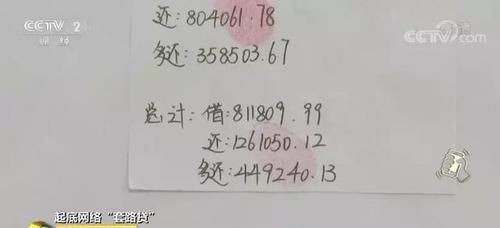 CCTV 2
财经
CCTV.com
还:804061.78
多还:358503.67
总计:借:811809.99
还:1261050.12
多还:449240.13
起底网络“套路贷”